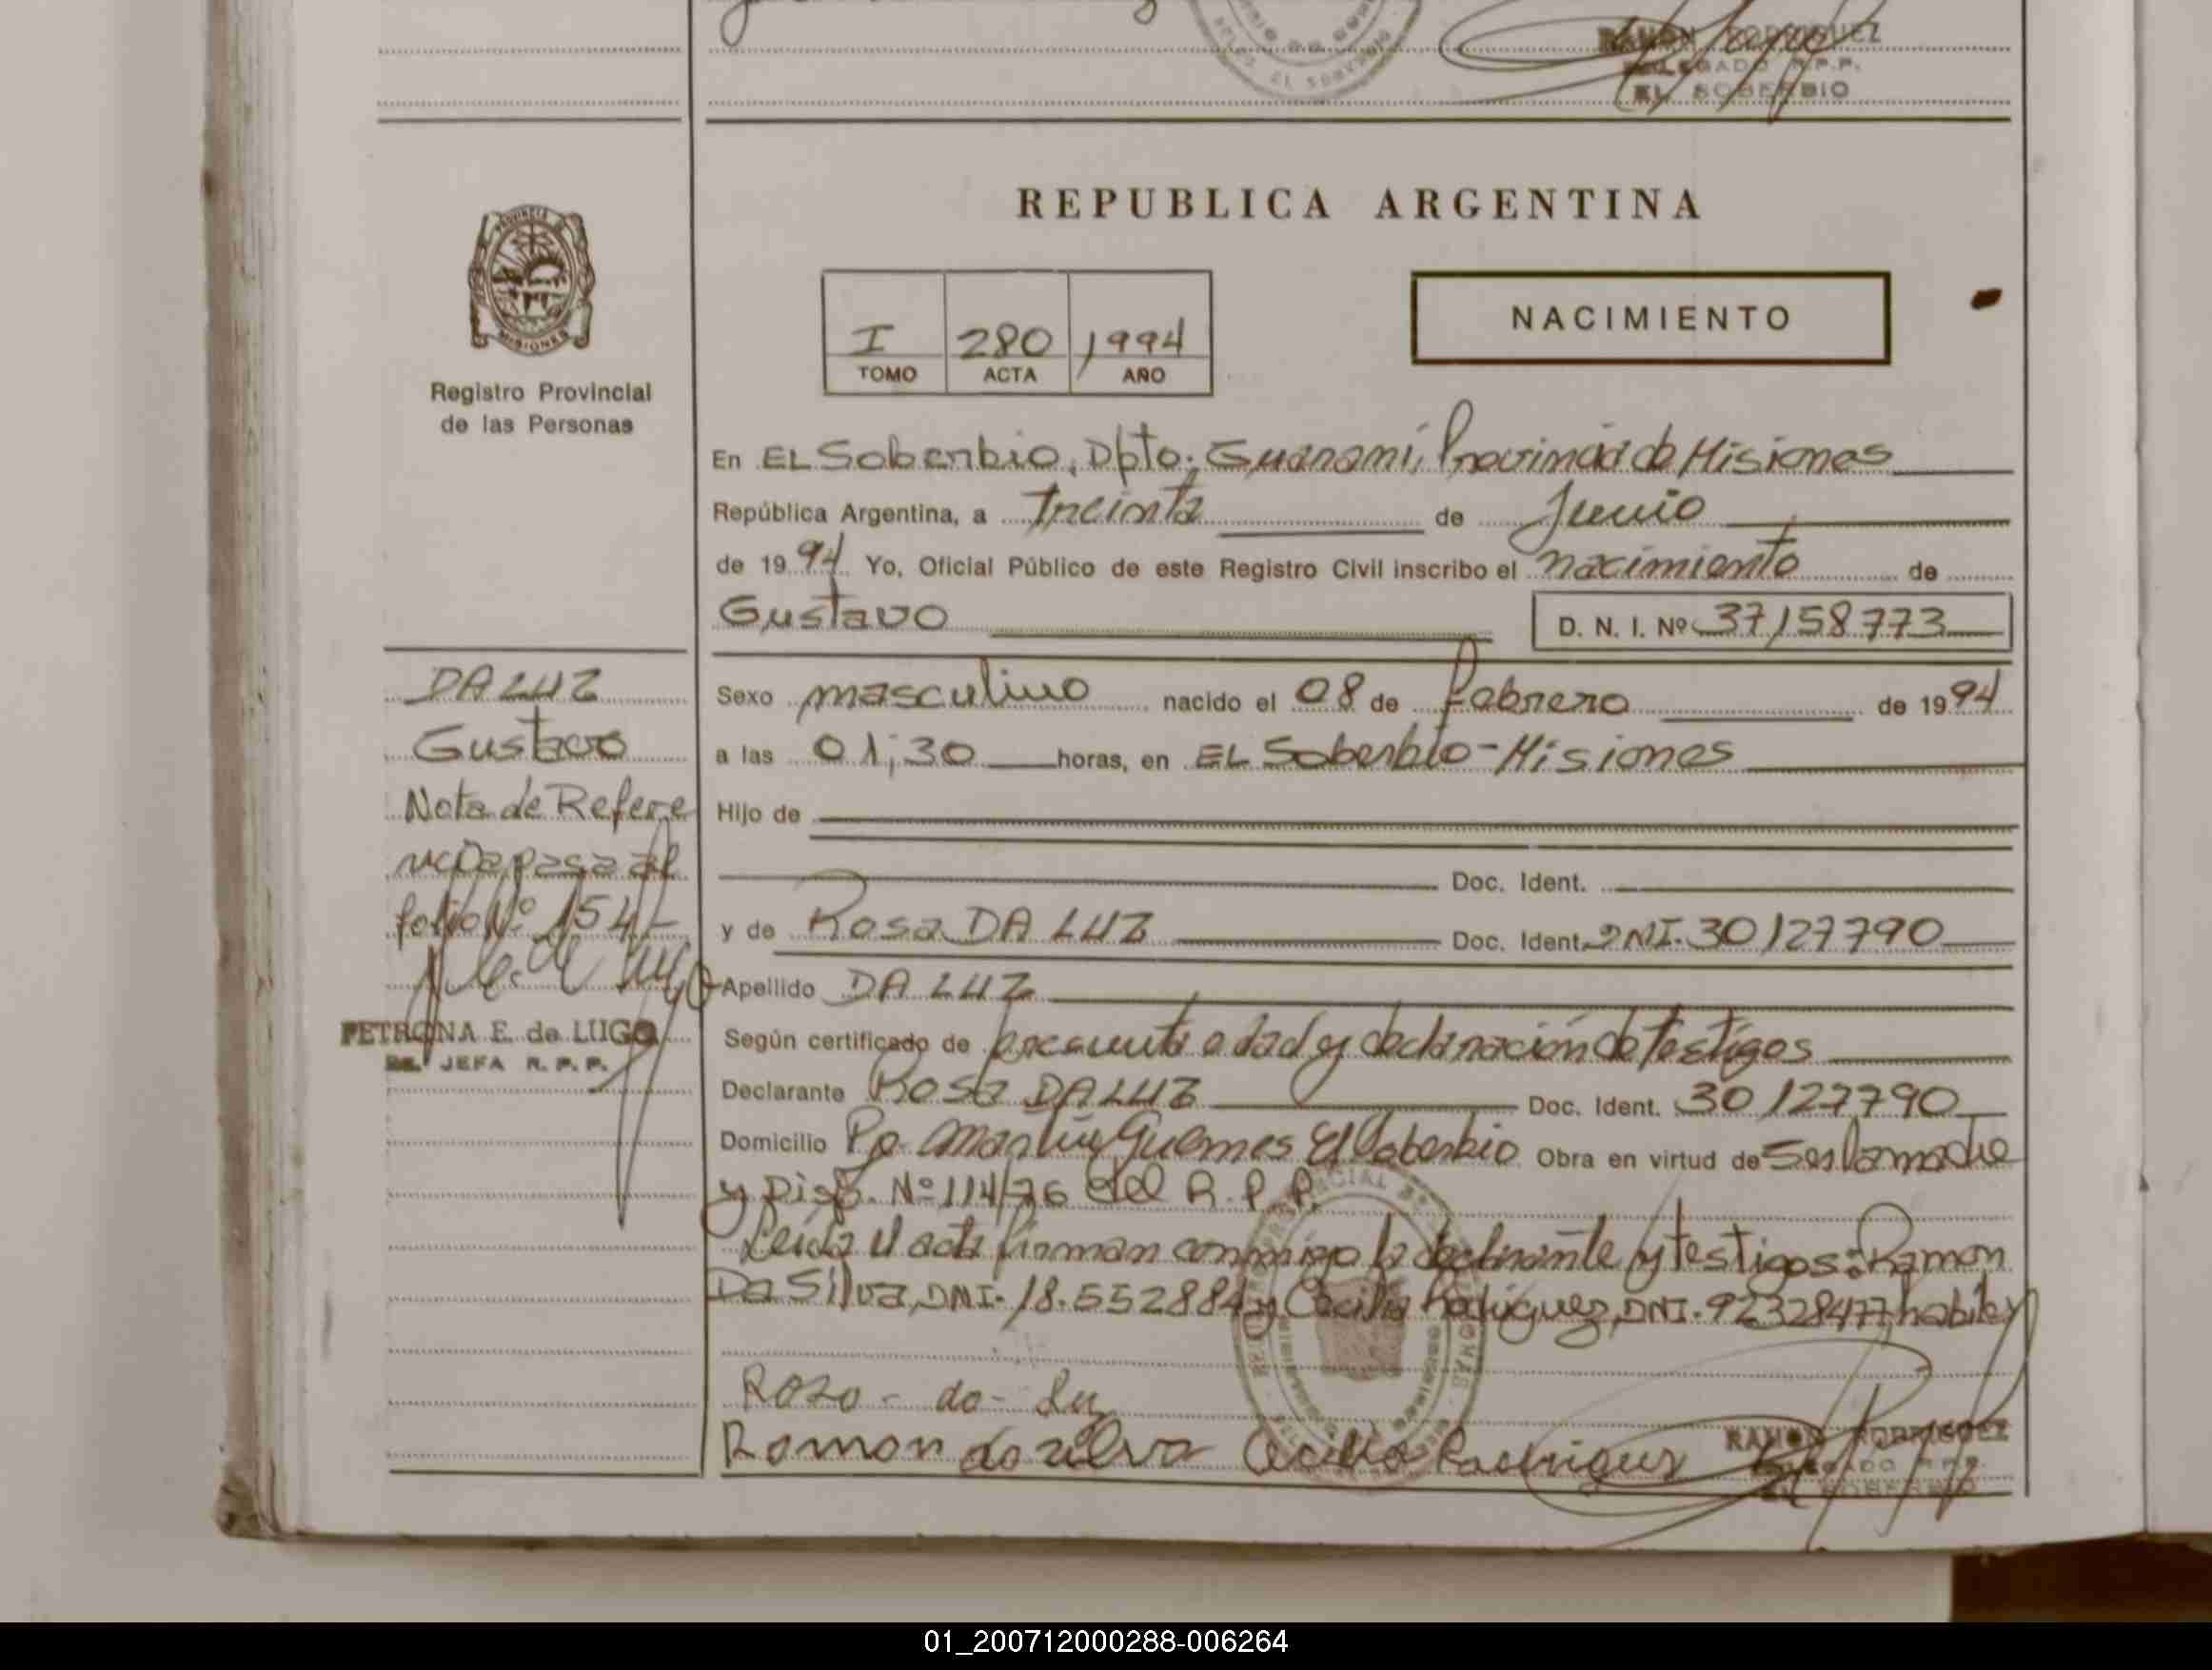 RAMON RODRIGUEZ
DELEGADO R.P.P.
EL SOBERBIO
REPUBLICA ARGENTINA
PROVINCIA
MISIONES
Registro Provincial
de las Personas
I 280 1994
TOMO ACTA AÑO
NACIMIENTO
En EL Soberbio, Dpto; Guaraní, Provincia de Misiones
República Argentina, a Treinta de Junio
de 1994 Yo, Oficial Público de este Registro Civil inscribo el nacimiento de
Gustavo D. N. I. Nº 37158773
Sexo masculino nacido el 08 de febrero de 1994
a las 01;30 horas, en EL Soberbio-Misiones
Hijo de
Doc. Ident.
y de Rosa DA LUZ Doc. Ident. DNI. 30127790
Apellido DA LUZ
Según certificado de presunta edad y declaración de testigos
Declarante Rosa DA LUZ Doc. Ident. 30127790
Domicilio Pje. Martín Guemes El Soberbio Obra en virtud de Ser la madre
y Disp. Nº 114/76 del R.P.P.
Leída el acta firman conmigo la declarante y testigos: Ramon
Da Silva, DNI. 18.552884 y Cecilia Rodriguez, DNI. 92328477 habiles
Roza-da-Luz
Ramon da silva Cecilia Rodriguez
RAMON RODRIGUEZ
DELEGADO R.P.P.
EL SOBERBIO
DA LUZ
Gustavo
Nota de Refere
ncia pasa al
folio Nº 154-
PETRONA E. de LUGO
JEFA R. P. P.
01_200712000288-006264